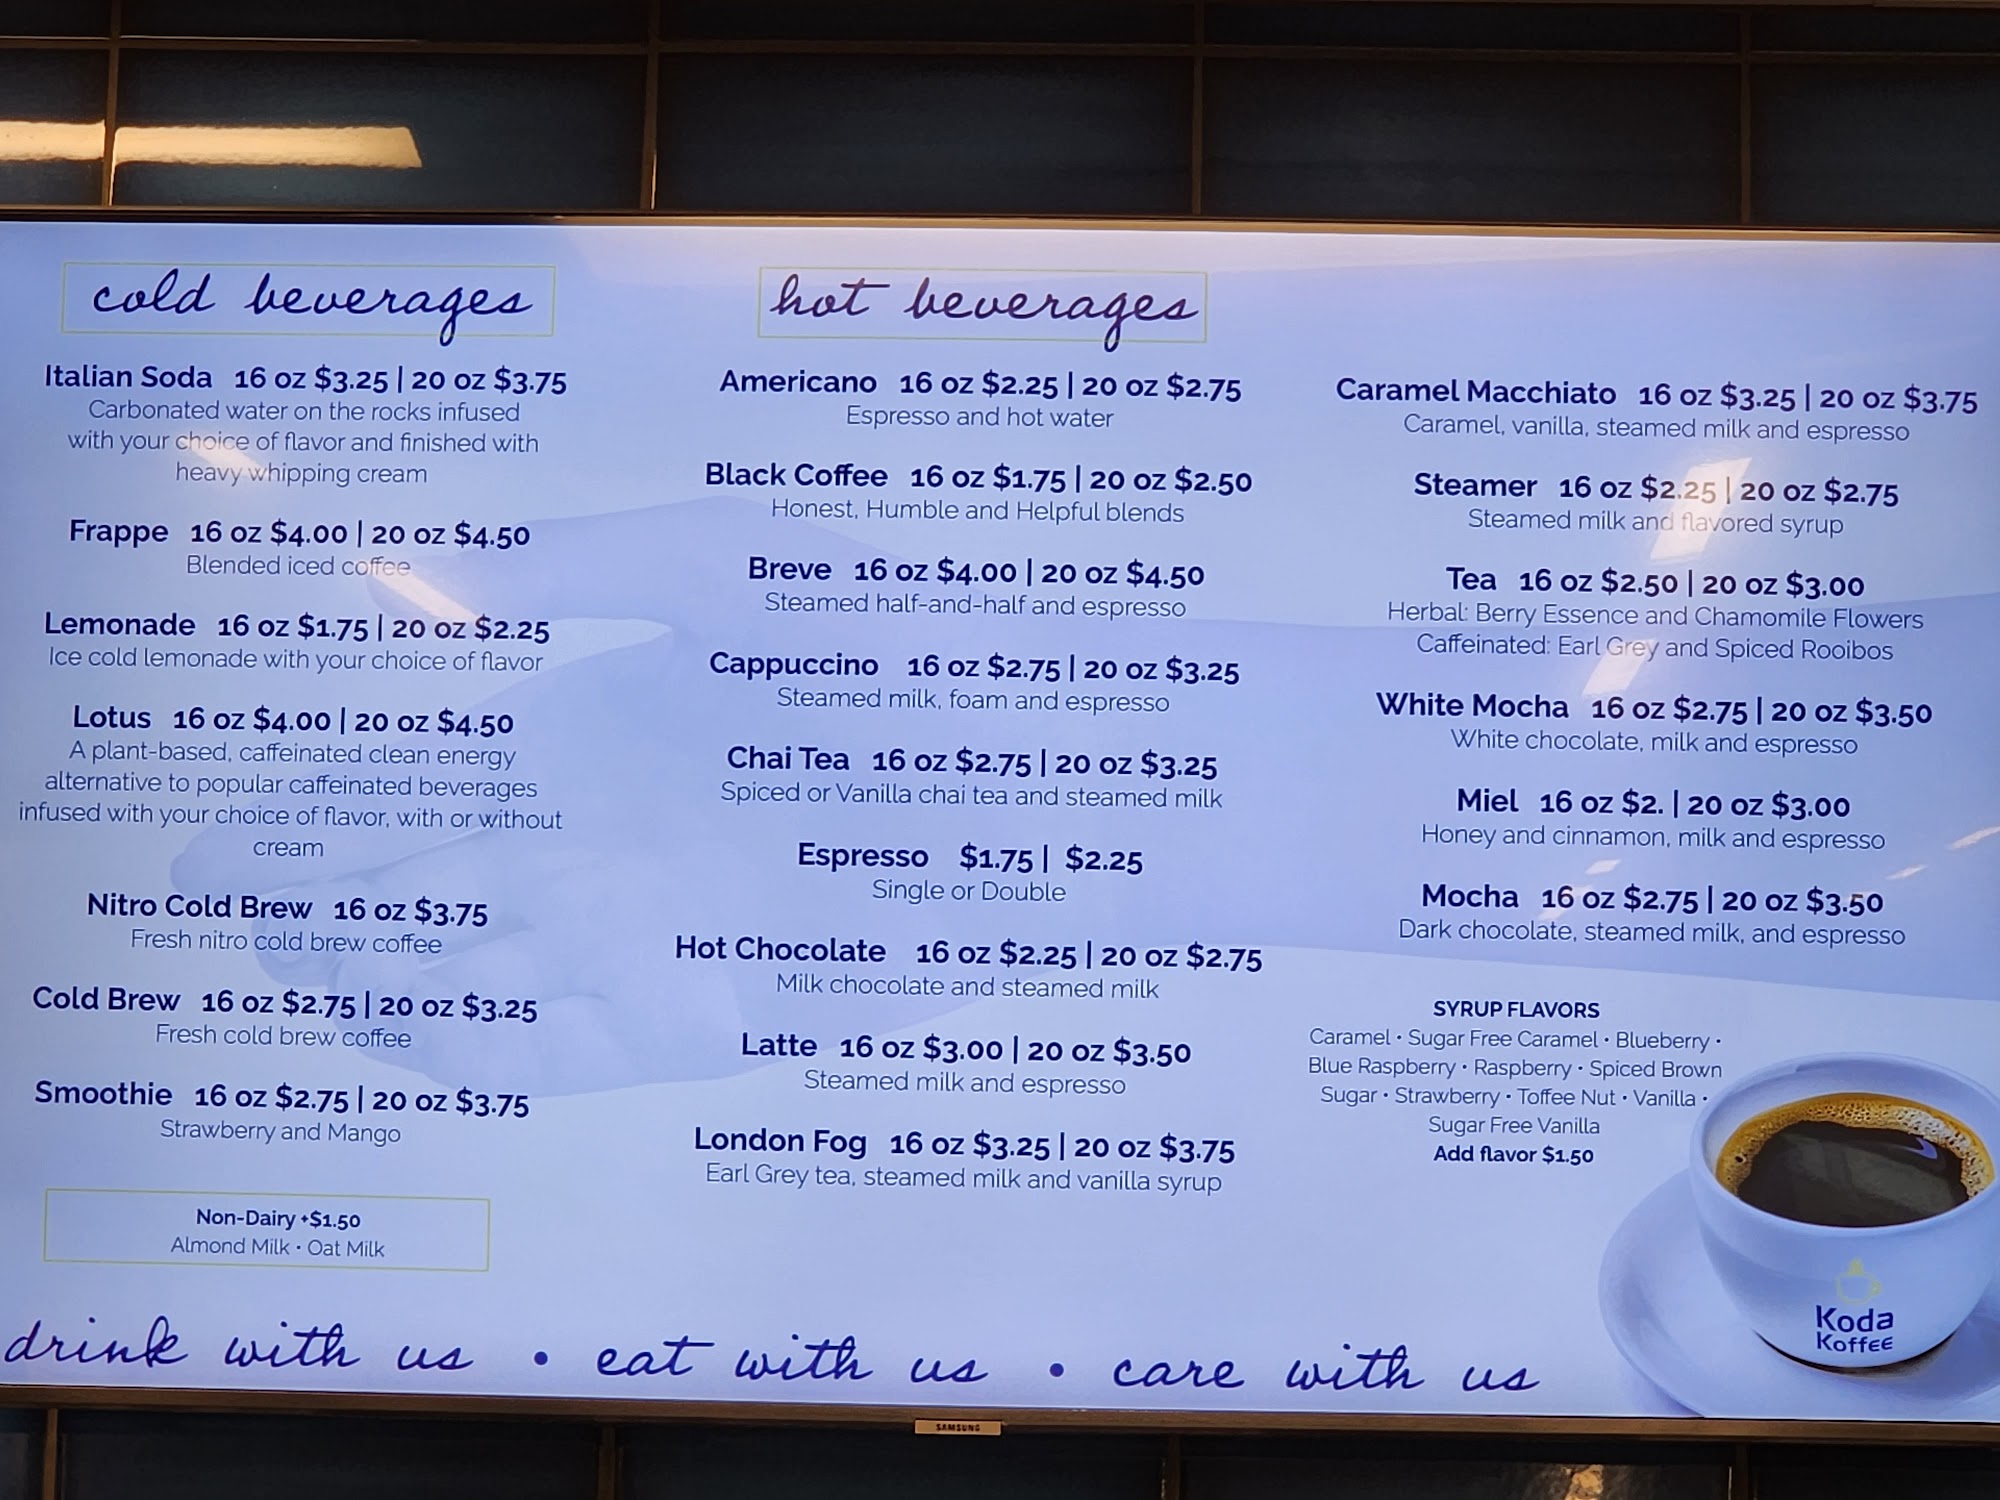 cold beverages
Italian Soda 16 oz $3.25 | 20 oz $3.75
Carbonated water on the rocks infused
with your choice of flavor and finished with
heavy whipping cream
Frappe 16 oz $4.00 | 20 oz $4.50
Blended iced coffee
Lemonade 16 oz $1.75 | 20 oz $2.25
Ice cold lemonade with your choice of flavor
Lotus 16 oz $4.00 | 20 oz $4.50
A plant-based, caffeinated clean energy
alternative to popular caffeinated beverages
infused with your choice of flavor, with or without
cream
Nitro Cold Brew 16 oz $3.75
Fresh nitro cold brew coffee
Cold Brew 16 oz $2.75 | 20 oz $3.25
Fresh cold brew coffee
Smoothie 16 oz $2.75 | 20 oz $3.75
Strawberry and Mango
Non-Dairy +$1.50
Almond Milk • Oat Milk
hot beverages
Americano 16 oz $2.25 | 20 oz $2.75
Espresso and hot water
Black Coffee 16 oz $1.75 | 20 oz $2.50
Honest, Humble and Helpful blends
Breve 16 oz $4.00 | 20 oz $4.50
Steamed half-and-half and espresso
Cappuccino 16 oz $2.75 | 20 oz $3.25
Steamed milk, foam and espresso
Chai Tea 16 oz $2.75 | 20 oz $3.25
Spiced or Vanilla chai tea and steamed milk
Espresso $1.75 | $2.25
Single or Double
Hot Chocolate 16 oz $2.25 | 20 oz $2.75
Milk chocolate and steamed milk
Latte 16 oz $3.00 | 20 oz $3.50
Steamed milk and espresso
London Fog 16 oz $3.25 | 20 oz $3.75
Earl Grey tea, steamed milk and vanilla syrup
Caramel Macchiato 16 oz $3.25 | 20 oz $3.75
Caramel, vanilla, steamed milk and espresso
Steamer 16 oz $2.25 | 20 oz $2.75
Steamed milk and flavored syrup
Tea 16 oz $2.50 | 20 oz $3.00
Herbal: Berry Essence and Chamomile Flowers
Caffeinated: Earl Grey and Spiced Rooibos
White Mocha 16 oz $2.75 | 20 oz $3.50
White chocolate, milk and espresso
Miel 16 oz $2. | 20 oz $3.00
Honey and cinnamon, milk and espresso
Mocha 16 oz $2.75 | 20 oz $3.50
Dark chocolate, steamed milk, and espresso
SYRUP FLAVORS
Caramel • Sugar Free Caramel • Blueberry •
Blue Raspberry • Raspberry • Spiced Brown
Sugar • Strawberry • Toffee Nut • Vanilla •
Sugar Free Vanilla
Add flavor $1.50
Koda
Koffee
drink with us • eat with us • care with us
SAMSUNG